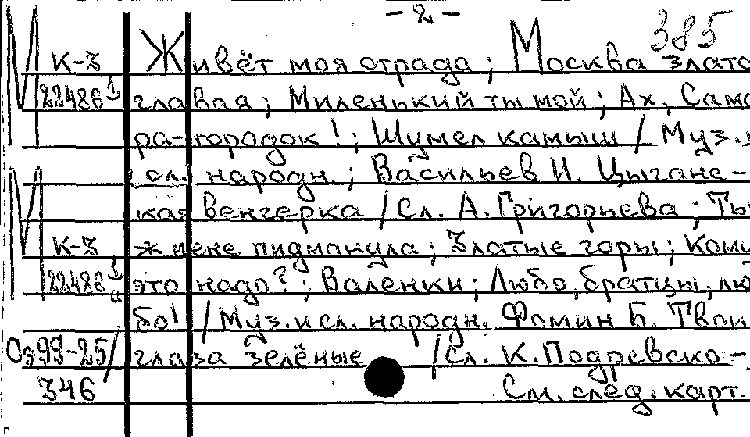 - 2 -
385
К-3 Живёт моя отрада; Москва злато-
22486 главая; Миленький ты мой; Ах, Сама-
ра-городок!; Шумел камыш / Муз. и
сл. народн.; Васильев И. Цыганс-
кая венгерка / Сл. А. Григорьева; Ты
К-3 ж мене пидманула; Златые горы; Кому
22486 это надо?; Валенки; Любо, братцы, лю-
бо! / Муз. и сл. народн. Фомин Б. Твои
Оз99-25/ глаза зелёные / Сл. К. Подревско-
346 См. след. карт.